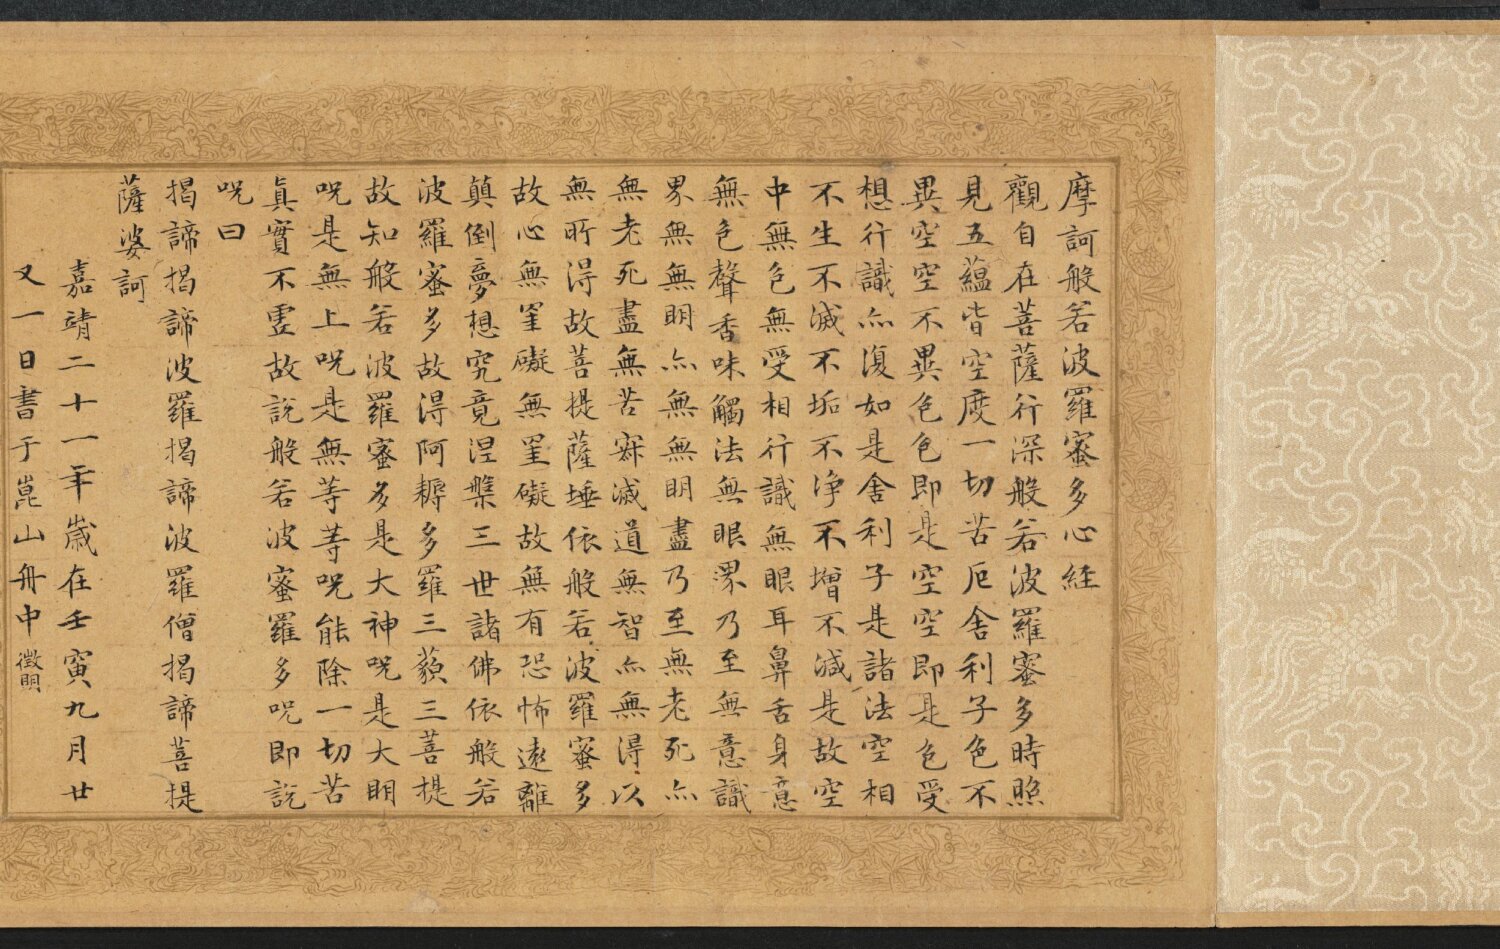 摩訶般若波羅蜜多心経
觀自在菩薩行深般若波羅蜜多時照
見五蘊皆空度一切苦厄舍利子色不
異空空不異色色即是空空即是色受
想行識亦復如是舍利子是諸法空相
不生不滅不垢不净不增不減是故空
中無色無受相行識無眼耳鼻舌身意
無色聲香味觸法無眼界乃至無意識
界無無明亦無無明盡乃至無老死亦
無老死盡無苦寂滅道無智亦無得以
無所得故菩提薩埵依般若波羅蜜多
故心無罣礙無罣礙故無有恐怖遠離
顛倒夢想究竟涅槃三世諸佛依般若
波羅蜜多故得阿耨多羅三藐三菩提
故知般若波羅蜜多是大神呪是大明
呪是無上呪是無等等呪能除一切苦
真實不虛故說般若波蜜羅多呪即説
呪曰
揭諦揭諦波羅揭諦波羅僧揭諦菩提
薩婆訶
嘉靖二十一年歲在壬寅九月廿
又一日書于崑山舟中徵明